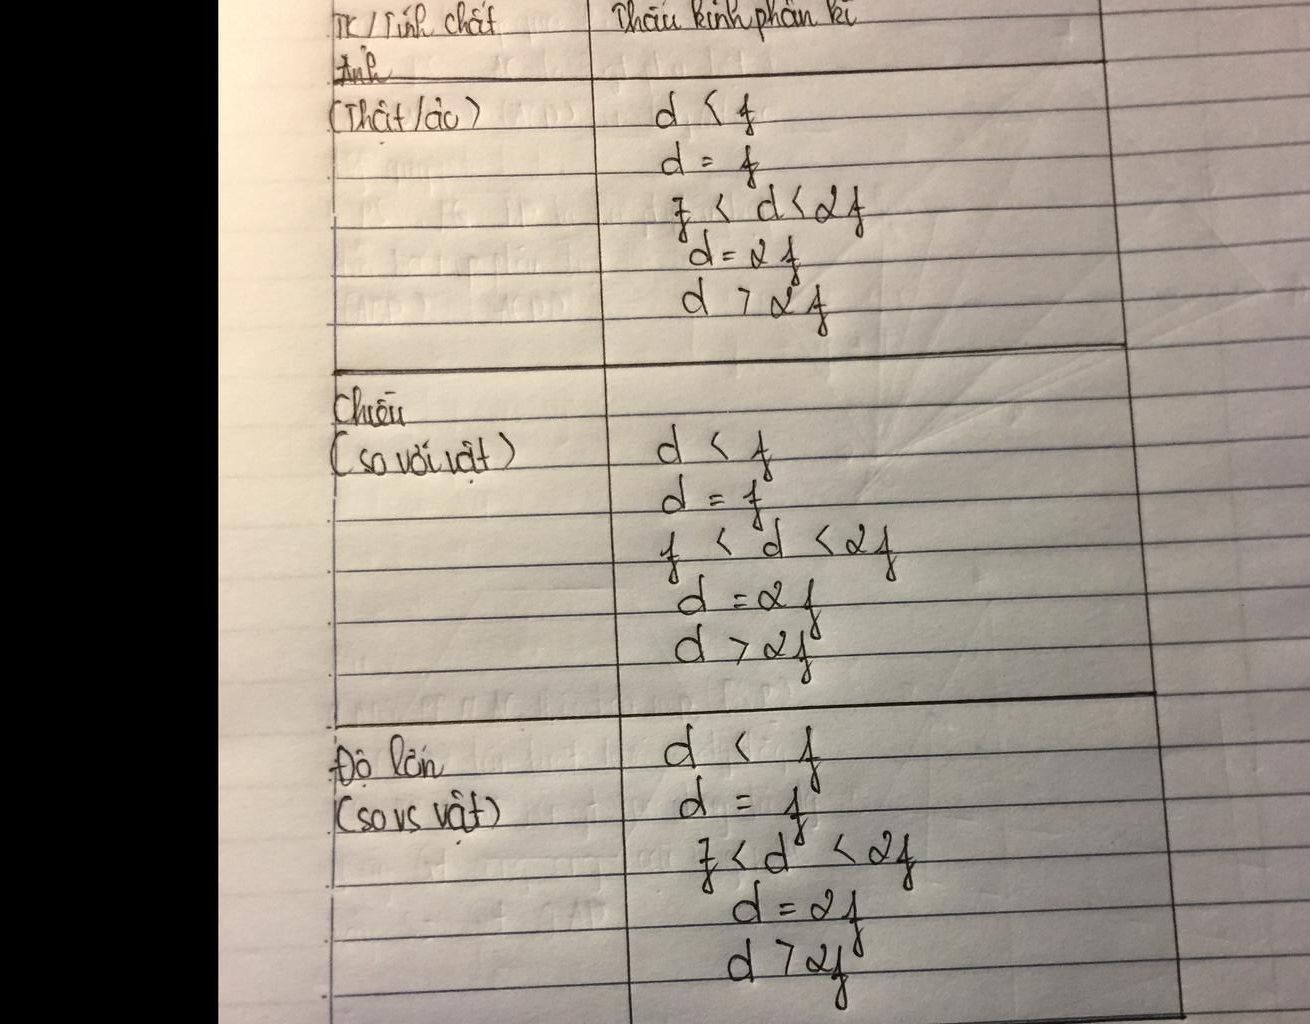 TK/Tính chất Thấu kính phân kì
Ảnh
(Thật/ảo) d < f
d = f
f < d < 2f
d = 2f
d > 2f
Chiều
(so với vật) d < f
d = f
f < d < 2f
d = 2f
d > 2f
Độ lớn d < f
(so vs vật) d = f
f < d < 2f
d = 2f
d > 2f